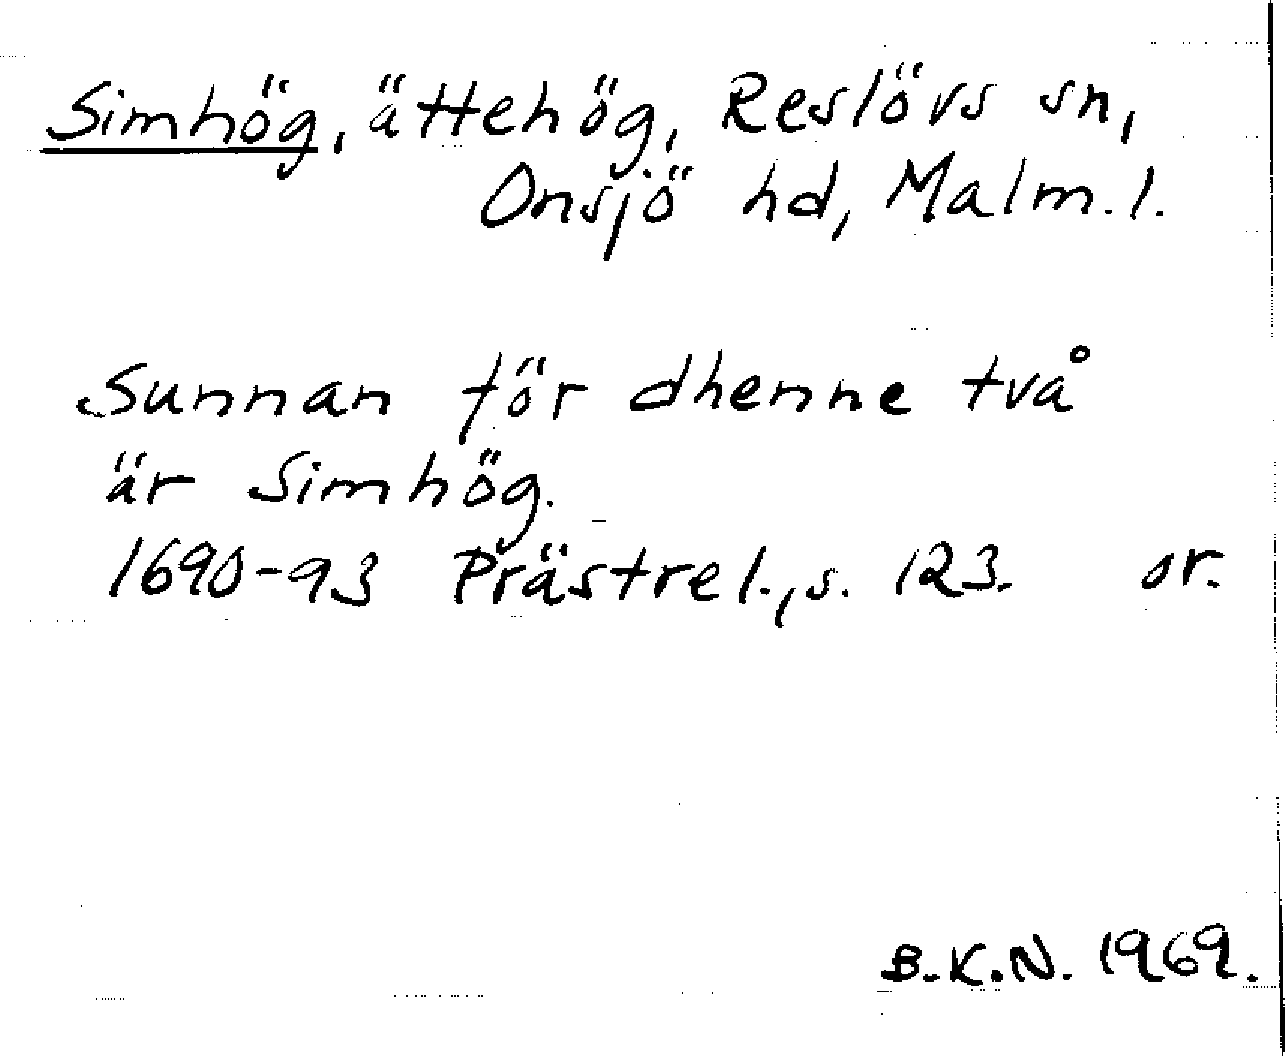 Simhög, ättehög, Reslövs sn,
Onsjö hd, Malm. l.
Sunnan för dhenne två
är Simhög.
1690-93 Prästrel., s. 123. or.
B.K.N. 1969.